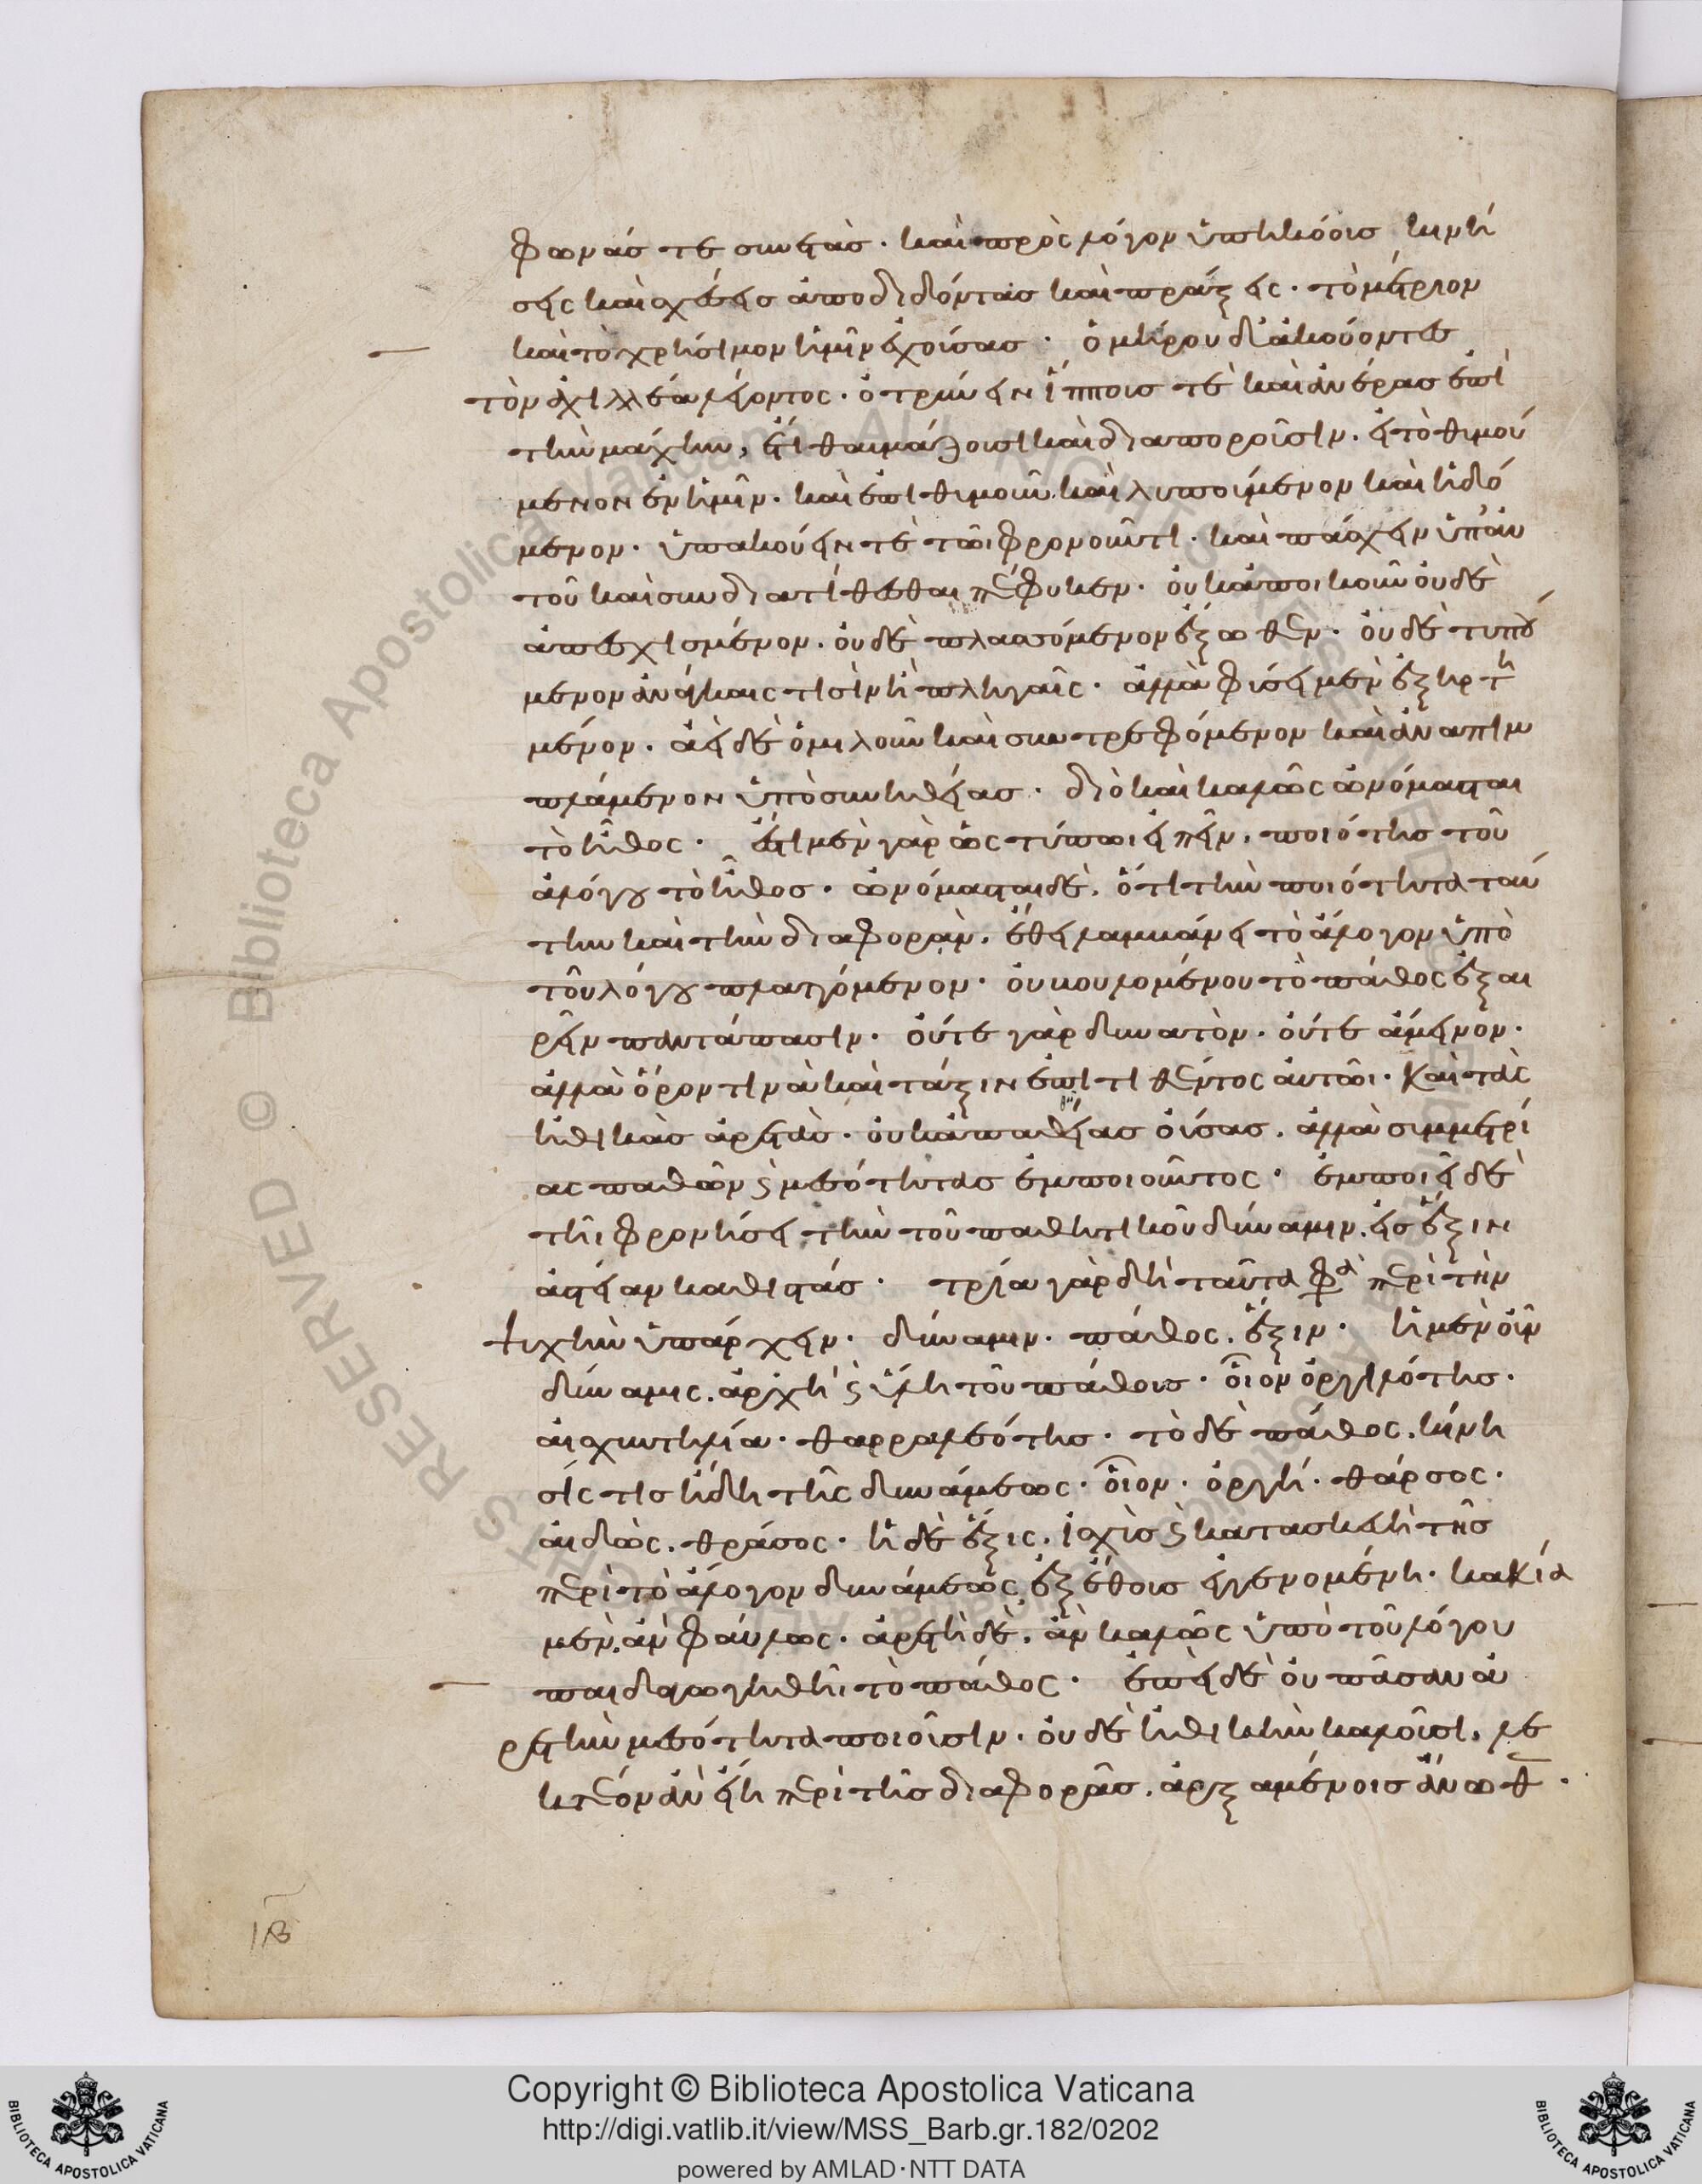 φωνάς τε συνετὰς· καὶ πρὸς λόγον ὑπηκόους κινή
σεις καὶ σχέσεις ἀποδιδόντας καὶ πράξεις· τὸ μέτριον
καὶ τὸ χρήσιμον ἡμῖν ἐχούσας· ὁμήρου δ' ἀκούοντες
τὸν ἀχιλλέα λέγοντος· ὀτρύνειν ἵππους τὲ καὶ ἀνέρας ἐπὶ
τὴν μάχην, ἔτι θαυμάζουσι καὶ διαποροῦσιν. εἰ τὸ θυμού
μενον ἐν ἡμῖν· καὶ ἐπιθυμοῦν καὶ λυπούμενον καὶ ἡδό
μενον· ὑπακούειν τὲ τῶι φρονοῦντι· καὶ πάσχειν ὑπ' αὐ
τοῦ καὶ συνδιατίθεσθαι πέφυκεν· οὐκ ἄποικουν οὐδὲ
ἀπεσχισμένον. οὐδὲ πλασσόμενον ἔξωθεν· οὐδὲ τυπού
μενον ἀνάγκαις τισὶν ἢ πληγαῖς· ἀλλὰ φύσει μὲν ἐξηρτη
μένον. ἀεὶ δὲ ὁμιλοῦν καὶ συντρεφόμενον καὶ ἀναπιμ
πλάμενον ὑπὸ συνηθείας· διὸ καὶ καλῶς ὠνόμασται
τὸ ἦθος· ἔστι μὲν γὰρ ὡς τύπωι εἰπεῖν, ποιότης τοῦ
ἀλόγου τὸ ἦθος· ὠνόμασται δὲ. ὅτι τὴν ποιότητα ταύ
την καὶ τὴν διαφορὰν. ἔθει λαμβάνει τὸ ἄλογον ὑπὸ
τοῦ λόγου πλαττόμενον· οὐ βουλομένου τὸ πάθος ἐξαι
ρεῖν παντάπασιν· οὔτε γὰρ δυνατὸν· οὔτε ἄμεινον·
ἀλλὰ ὅρον τινὰ καὶ τάξιν ἐπιτιθέντος αὐτῶι· καὶ τὰς
ἠθικὰς ἀρετὰς· οὐκ ἀπαθείας οὔσας. ἀλλὰ συμμετρί
ας παθῶν ϛ μεσότητας ἐμποιοῦντος· ἐμποιεῖ δὲ
τῆι φρονήσει τὴν τοῦ παθητικοῦ δύναμιν. εἰς ἕξιν
ἀστείαν καθιστάς· τρία γὰρ δὴ ταῦτα φα περὶ τὴν
ψυχὴν ὑπάρχειν· δύναμιν· πάθος. ἕξιν· ἡ μὲν οὖν
δύναμις. ἀρχὴ ϛ ὕλη τοῦ πάθους· οἷον ὀργιλότης.
αἰσχυντηλία· θαρραλεότης· τὸ δὲ πάθος. κίνη
σίς τις ἤδη τῆς δυνάμεως· οἷον· ὀργή· θάρσος·
αἰδὼς. θράσος· ἡ δὲ ἕξις. ἰσχὺς ϛ κατασκευὴ τῆς
περὶ τὸ ἄλογον δυνάμεως ἐξ ἔθους ἐγγενομένη· κακία
μὲν. ἂν φαύλως· ἀρετὴ δὲ. ἂν καλῶς ὑπὸ τοῦ λόγου
παιδαγωγηθῆι τὸ πάθος· ἐπεὶ δὲ οὐ πᾶσαν ἀ
ρετὴν μεσότητα ποιοῦσιν· οὐδὲ ἠθικὴν καλοῦσι. λε
κτέον ἂν εἴη περὶ τῆς διαφορᾶς. ἀρξαμένοις ἄνωθ·
ιβ
Copyright © Biblioteca Apostolica Vaticana
http://digi.vatlib.it/view/MSS_Barb.gr.182/0202
powered by AMLAD·NTT DATA